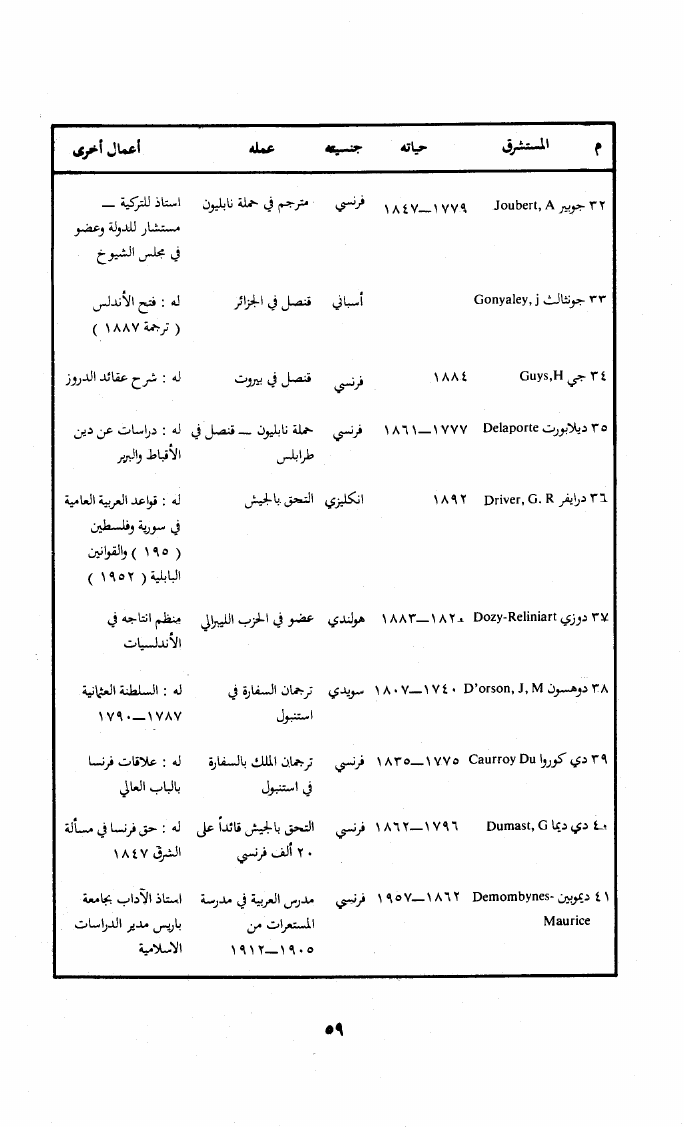 م المستشرق حياته جنسيته عمله أعمال أخرى
٣٢ جوبير Joubert, A ١٧٧٩—١٨٤٧ فرنسي مترجم في حملة نابليون استاذ للتركية —
مستشار للدولة وعضو
في مجلس الشيوخ
٣٣ جونثالث Gonyaley, j أسباني قنصل في الجزائر له : فتح الأندلس
( ترجمة ١٨٨٧ )
٣٤ جي Guys,H ١٨٨٤ فرنسي قنصل في بيروت له : شرح عقائد الدروز
٣٥ ديلابورت Delaporte ١٧٧٧—١٨٦١ فرنسي حملة نابليون — قنصل في له : دراسات عن دين
طرابلس الأقباط والبربر
٣٦ درايفر Driver, G. R ١٨٩٢ انكليزي التحق بالجيش له : قواعد العربية العامية
في سورية وفلسطين
( ١٩٥ ) والقوانين
البابلية ( ١٩٥٢ )
٣٧ دوزي Dozy-Reliniart ١٨٢٠—١٨٨٣ هولندي عضو في الحزب الليبرالي منظم انتاجه في
الأندلسيات
٣٨ دوهسون D'orson, J, M ١٧٤٠—١٨٠٧ سويدي ترجمان السفارة في له : السلطنة العثمانية
استنبول ١٧٨٧—١٧٩٠
٣٩ دي كوروا Caurroy Du ١٧٧٥—١٨٣٥ فرنسي ترجمان الملك بالسفارة له : علاقات فرنسا
في استنبول بالباب العالي
٤٠ دي ديما Dumast, G ١٧٩٦—١٨٦٢ فرنسي التحق بالجيش قائداً على له : حق فرنسا في مسألة
٢٠ ألف فرنسي الشرق ١٨٤٧
٤١ ديموبين Demombynes- ١٨٦٢—١٩٥٧ فرنسي مدرس العربية في مدرسة استاذ الآداب بجامعة
Maurice المستعرات من باريس مدير الدراسات
١٩٠٥—١٩١٢ الاسلامية
٥٩